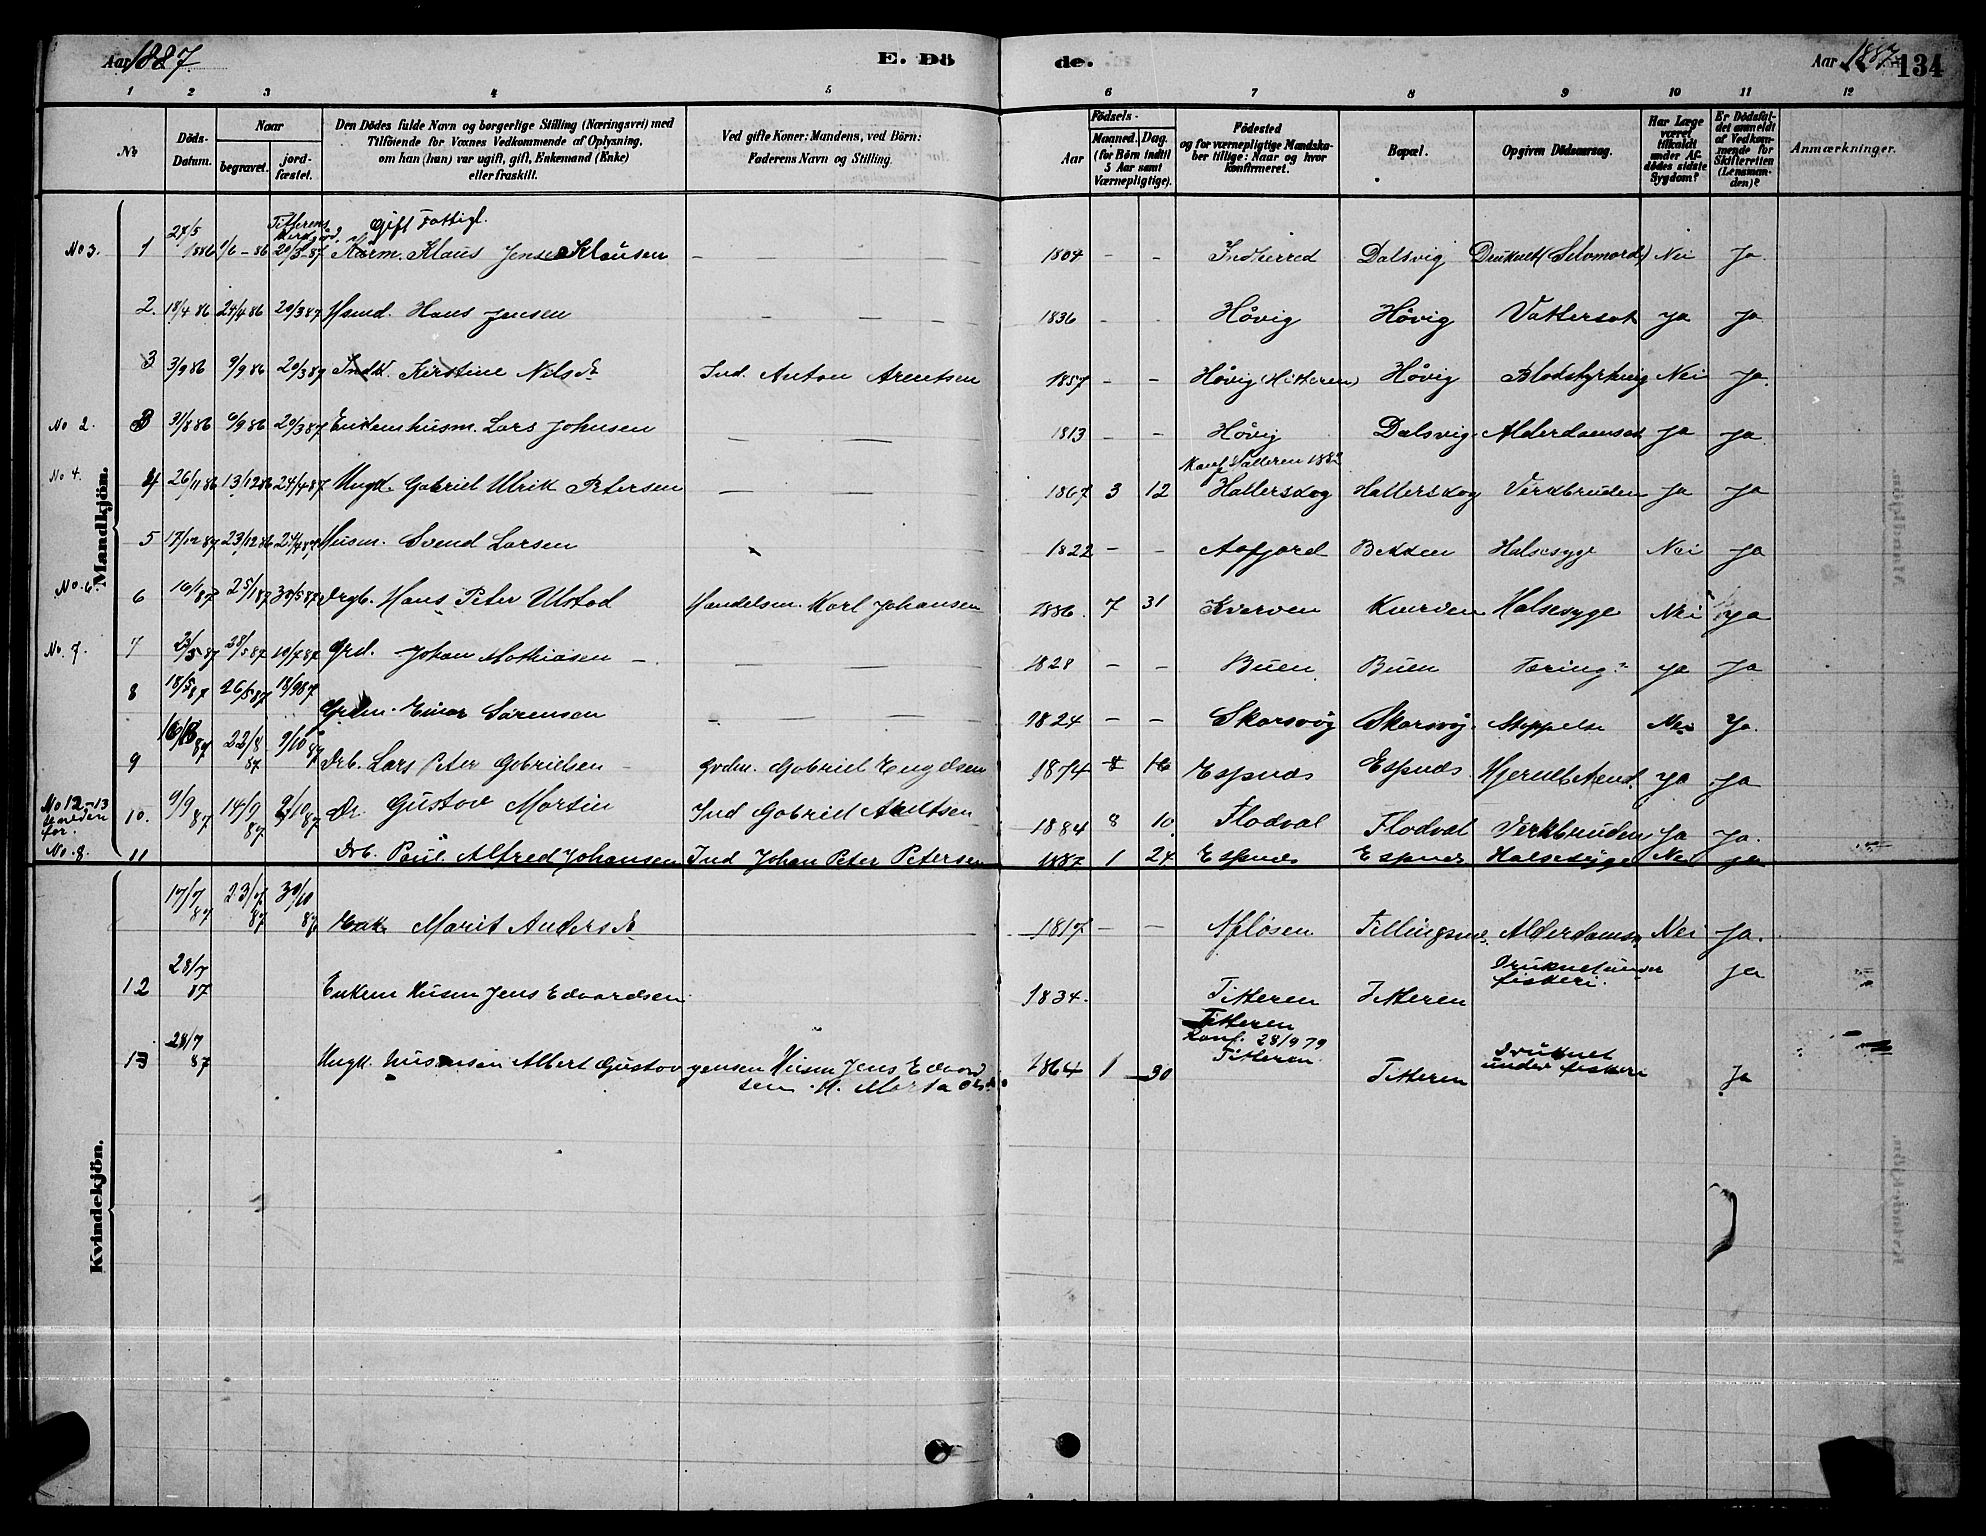 Aar 1887.
E. Dö
de.
Aar 1887 134
1 2 3 4 5 6 7 8 9 10 11 12
No
Döds-Datum.
Naar
begravet.
jord-fæstet.
Den Dödes fulde Navn og borgerlige Stilling (Næringsvei) med
Tilföiende for Voxnes Vedkommende af Oplysning,
om han (hun) var ugift, gift, Enkemand (Enke)
eller fraskilt.
Ved gifte Koner: Mandens, ved Börn:
Faderens Navn og Stilling.
Födsels-
Aar
Maaned. Dag.
(for Börn indtil
5 Aar samt
Værnepligtige).
Födested
og for værnepligtige Mandska-
ber tillige: Naar og hvor
konfirmeret.
Bopæl.
Opgiven Dödsaarsag.
Har Læge
været
tilkaldt
under Af-
dödes sidste
Sygdom?
Er Dödsfal-
det anmeldt
af Vedkom-
mende for
Skifteretten
(Lensman-
den)?
Anmærkninger.
Mandkjön.
Titterens
Gift Fattigl.
No 3. 1 1886 1/6-86 20/3-87 Klaus Jensen Klausen – – – 1804 – – Indherred Dalsvig Druknet (Selvmord) Nei Ja
2. 18/4 86 24/4 86 20/3 87 Hans Jensen – – – 1836 – – Hövig Hövig Vattersot Ja Ja
3 3/9 86 9/9 86 20/3 87 Kirstine Nilsdr Ind. Anton Arentsen 1857 – – Hövig (Hitteren) Hövig Blodstyrtning Nei Ja.
No 2. 3 31/8 86 9/9 86 20/3 87 Lars Johnsen – – – 1813 – – Hövig Dalsvig Alderdomsot Ja Ja
No 4. 4 26/11 86 13/12 86 24/4 87 Ungk. Gabriel Ulrik Petersen – – – 1867 3 12 Hallerskog Hallerskog Verkbruden Ja Ja
5 17/12 87 23/12 86 24/4 87 Husm. Svend Larsen 1822 – – Aafjord Bekken Halsesyge Nei Ja
No. 6. 6 16/1 87 25/1 87 30/5 87 Drgb. Hans Peter Ulstad Handelsm. Karl Johansen 1886. 7 31 Kverven Kverven Halsesyge Nei Ja
No. 7. 7 23/5 87 28/5 87 10/7 87 Grd. Johan Mathiasen – – – 1828 – – Buen Buen Tæring? Ja Ja
8 18/5 87 26/5 87 18/9 87 Einar Sörensen – – – 1824 – – Skarsvög Skarsvög. Nei Ja.
9 22/8 87 9/10 87 Drb. Lars Peter Gabrielsen – Grdm. Gabriel 1874 Espnes Espnes Ja Ja
No 12-13
nedenfor.
10. 9/9 87 14/9 87 9/10 87 Dr. Gustav Martin Ind Gabriel Arntsen 1884 8 10 Flodval Flodval Verkbruden Ja Ja.
No. 8. 11 Drb. Paul Alfred Johansen Ind Johan Peter Petersen 1887 1 24 Espnes Espnes Halsesyge Nei Ja
Kvindekjön.
17/7 87 23/7 87 30/10 87 Marit Andersdr 1817 – – Aflösen Alderdoms Nei Ja.
12 28/7 87 Enkem Husm Jens Edvardsen 1834. Titteren Titteren Druknet under fiskeri. Ja
13 28/7 87 Ungk. Albert Gustav Jensen Husm Jens Edvardsen. H. Marta 1864 1 30 Titteren Konf. 28/9 79 Titteren. Titteren Druknet under fiskeri Ja